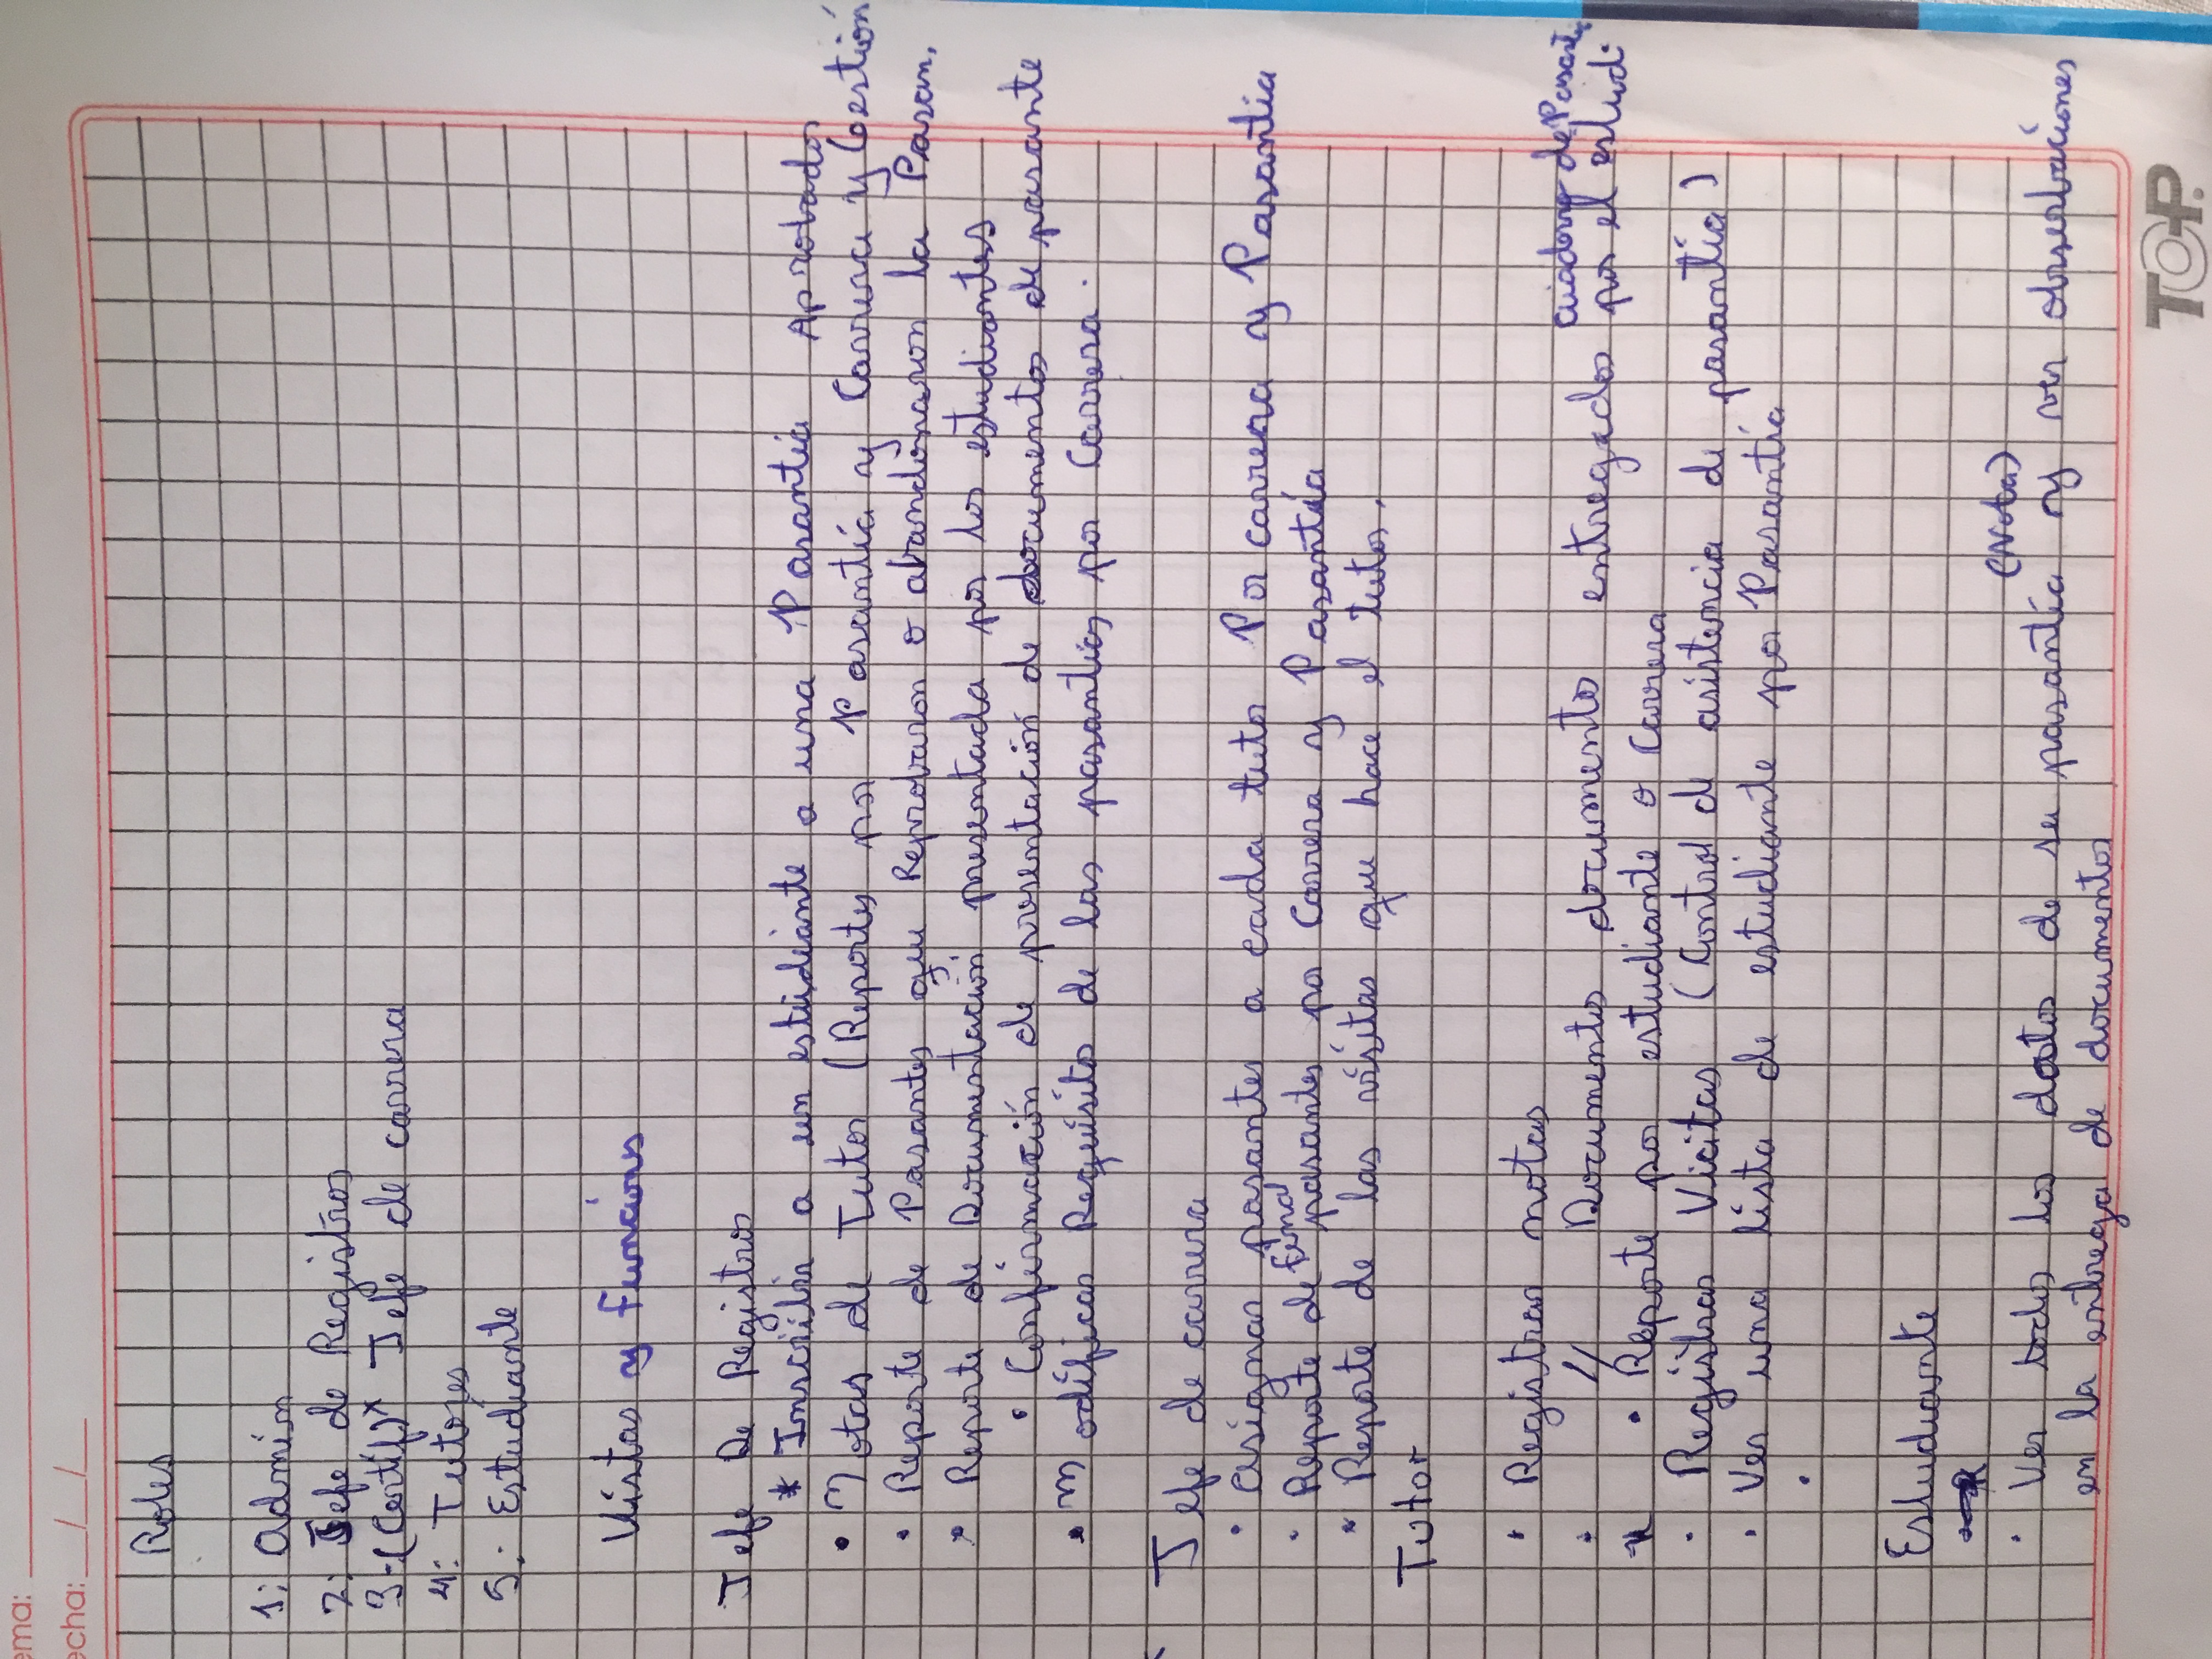 ema:
echa: __/__/__
Roles
1: Admin
2: Jefe de Registros
3-(Certif)* Jefe de carrera
4: Tutores
5: Estudiante
Vistas y Funcions
Jefe De Registros
* Inscribir a un estudiante a una Pasantía Aprobados
• Notas de Tutor (Reportes por Pasantía y Carrera y Gestión
• Reporte de Pasantes que Reprobaron o abandonaron la Pasan.
• Reporte de Documentación presentada por los estudiantes
• Confirmación de presentación de documentos de pasante
• Modificar Requisito de las pasantías por Carrera.
Jefe de carrera
• Asignar pasantes a cada tutor Por carrera y Pasantia
• Reporte de final pasantes por Carrera y Pasantía
• Reporte de las visitas que hace el tutor.
Tutor
• Registrar notas
cuaderno de Pasantia
• // Documentos documento entregados por el estud.
• Reporte por estudiante o Carrera
• Registrar Vicitas (Control de asistencia de pasantía)
• Ver una lista de estudiante por Pasantía
•
Estudiante
(Nota)
• Ver todos los datos de su pasantía y ver obserbaciones
en la entrega de documentos
TOP.